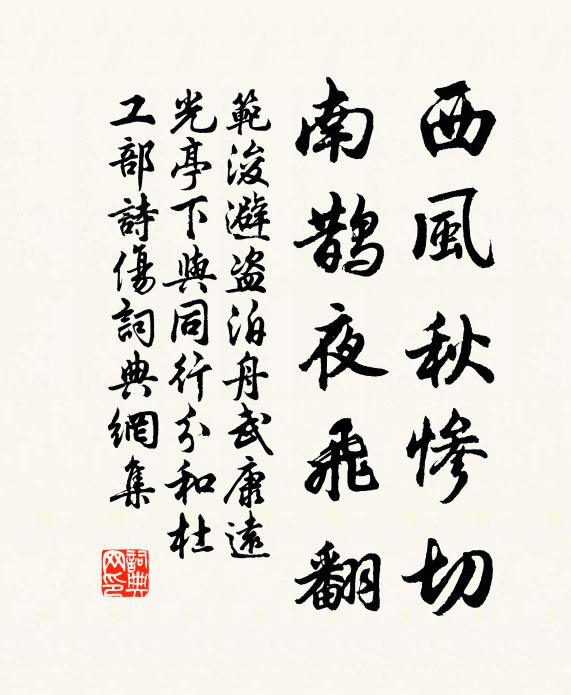 西風秋慘切
南鹊夜飛翻
範浚避盗泊舟武康遠
光亭下與同行分和杜
工部詩傷詞典網集
詞典網印